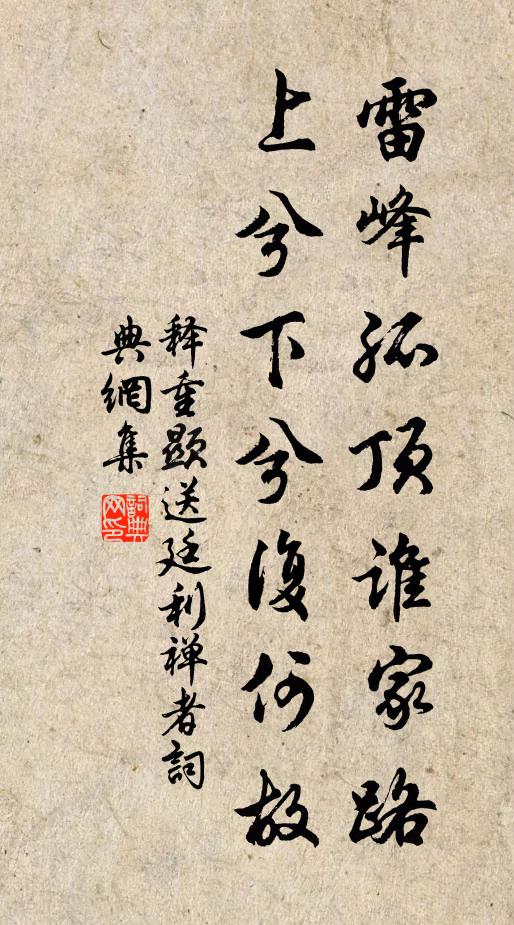 雷峰孤顶谁家路
上兮下兮復何故
释重顯送廷利禅者詞
典網集
詞典网印